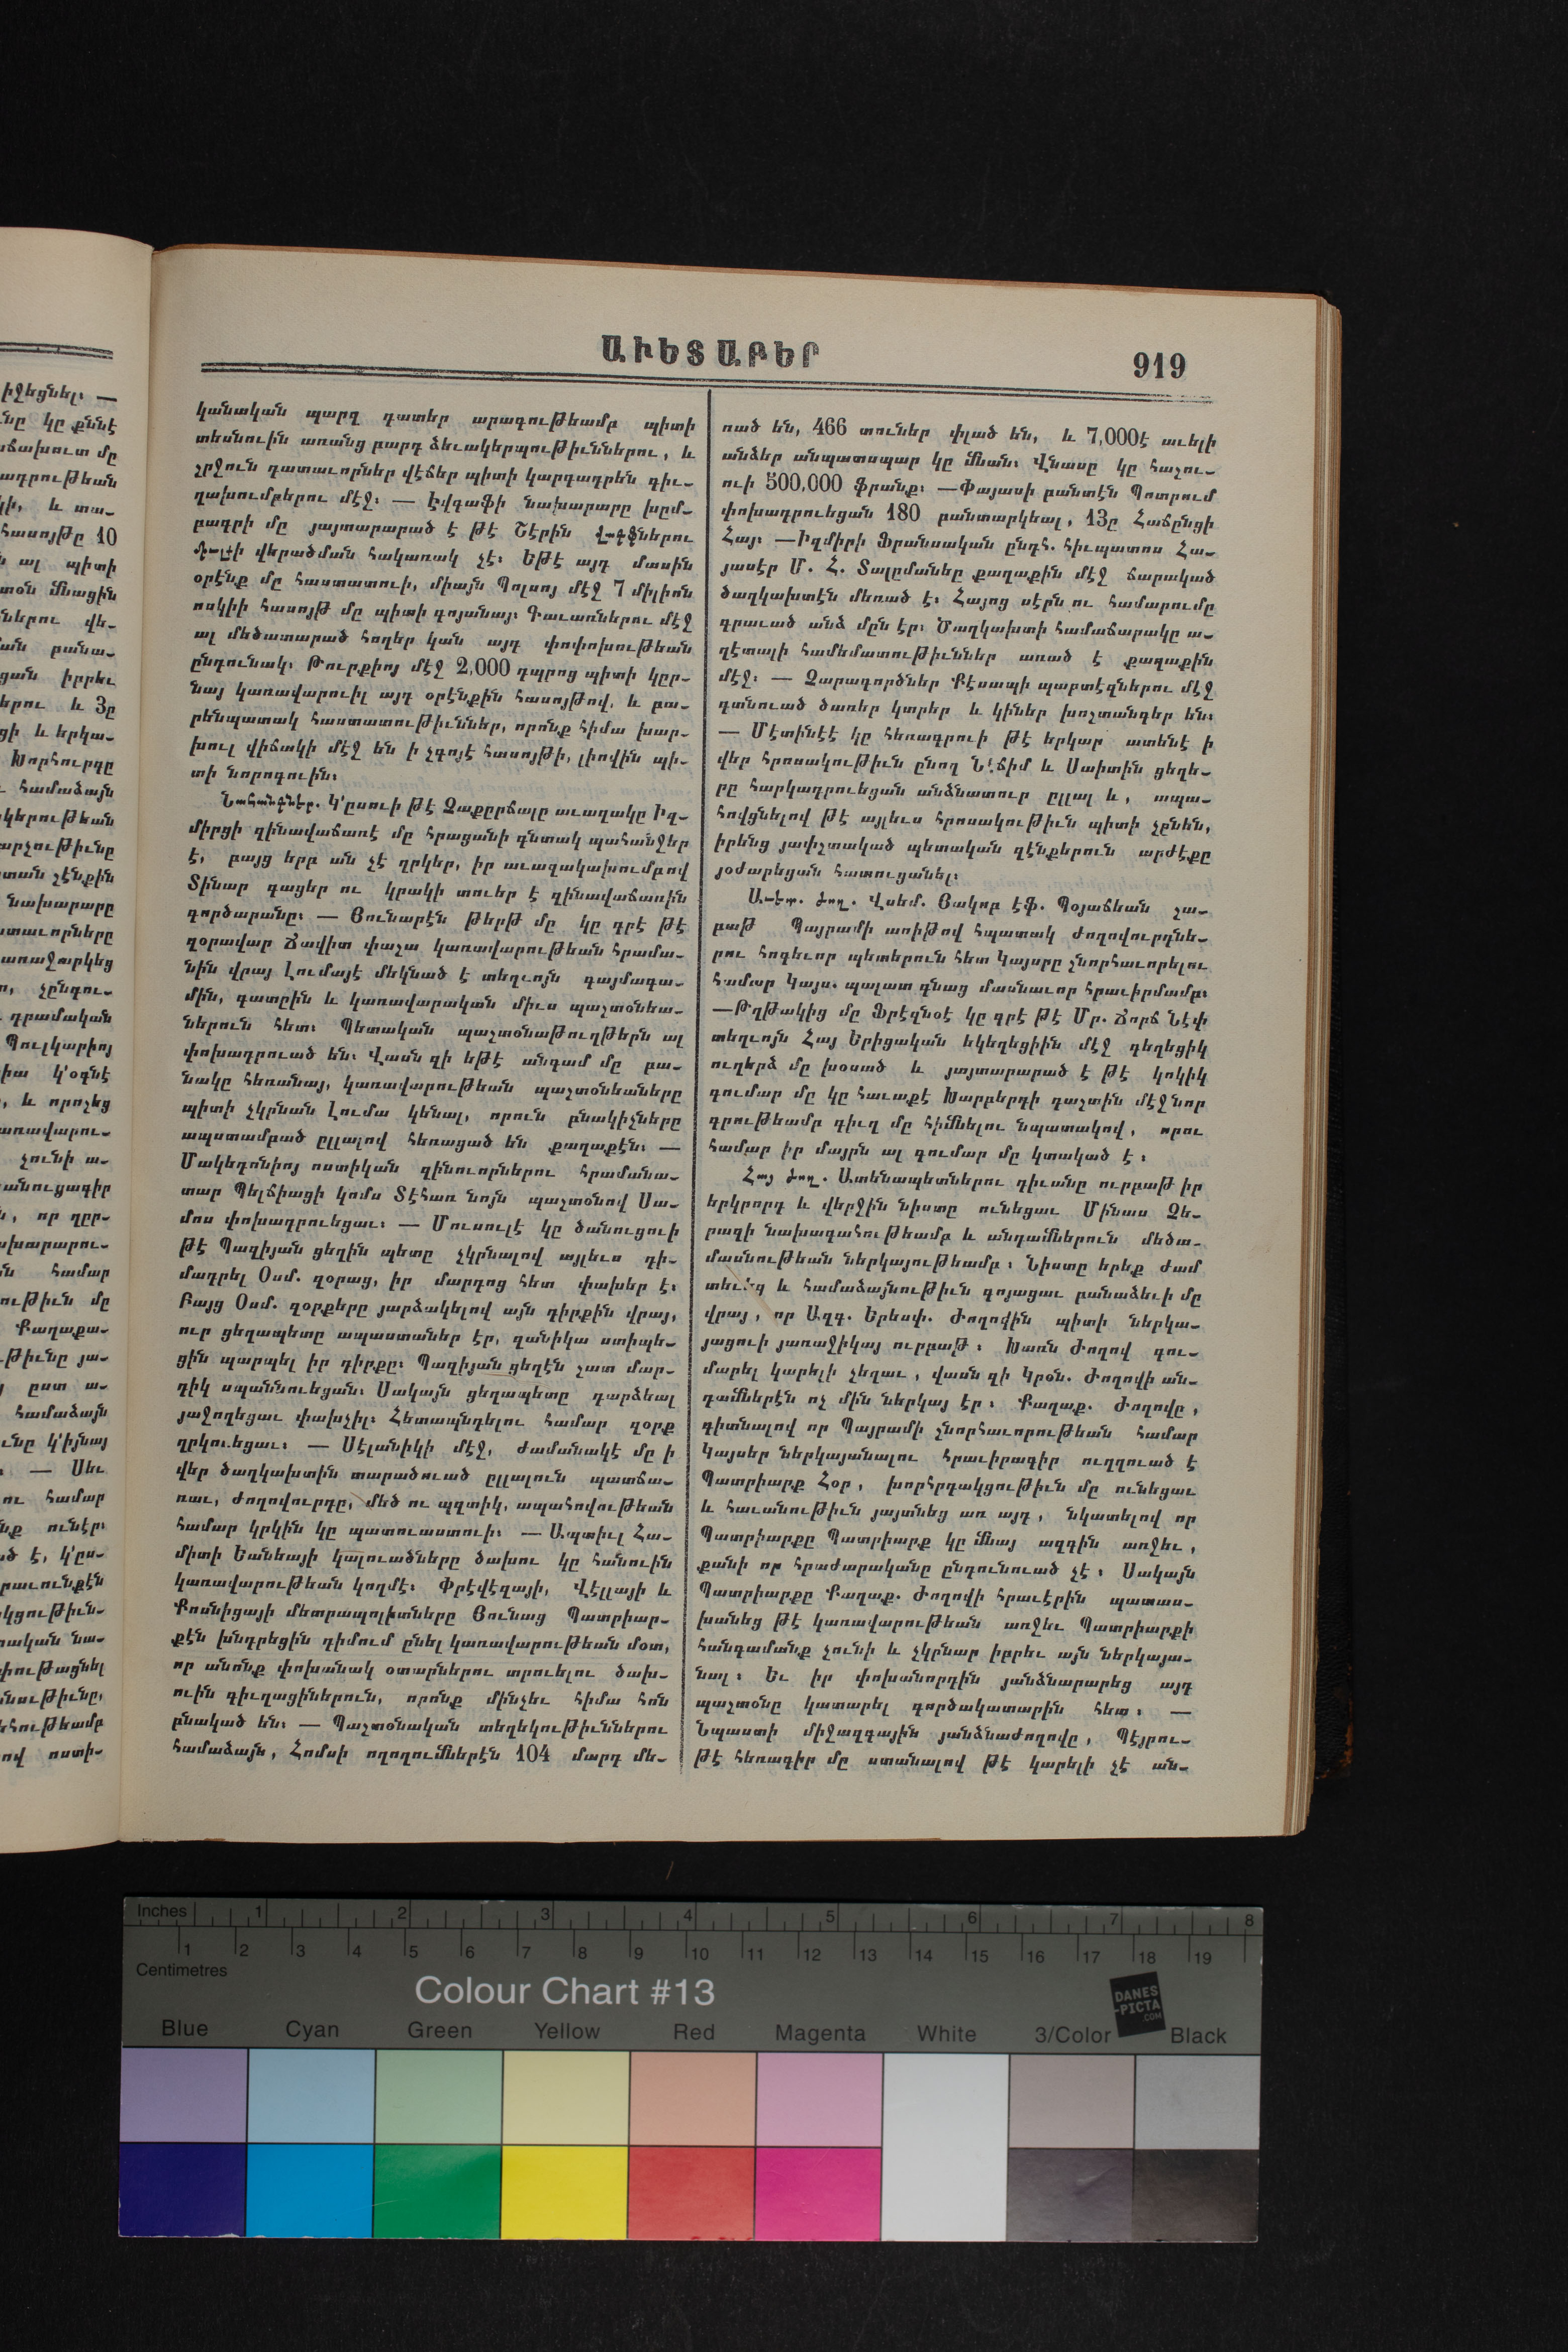 իջեցնել։ —
նը կը քննէ
ճախուտ մը
ադրութեան
կի, և տա-
հասոյթը 10
ն ալ պիտի
տօն մնացին
ներու վե-
ան բանա-
ցան իբրեւ
երու և 3ը
ցի և երկա-
Խորհուրդը
համաձայն
կերութեան
արչութիւնը
տան չէնքին
նախարարը
տաւորները
առաջարկեց
դրամական
Պուլկարիոյ
իա կ՚օգնէ
և որոշեց
առավարու-
չունի ա-
անուցագիր
որ դըր-
ախարարու-
ն համար
ութիւն մը
Քաղաքա-
թիւնը յա-
ըստ ա-
համաձայն
ւնը կ՚իյնայ
— Սեւ
ու համար
նք ունէր։
ած է, կ՚ըս-
րաւունքէն
կցութիւն-
ական նա-
փութացնել
նութիւնը,
եհութեամբ
ով ոստի-
ԱՒԵՏԱԲԵՐ
919
կանական պարզ դատեր արագութեամբ պիտի
տեսնուին առանց բարդ ձեւակերպութիւններու, և
շրջուն դատաւորներ վէճեր պիտի կարգադրեն գիւ-
ղախումբերու մէջ։ — Էվգաֆի նախարարը խըմ-
բագրի մը յայտարարած է թէ Շէրին վագըֆներու
մի վերածման հակառակ չէ։ Եթէ այդ մասին
օրէնք մը հաստատուի, միայն Պոլսոյ մէջ 7 միլիոն
ոսկիի հասոյթ մը պիտի գոյանայ։ Գաւառներու մէջ
ալ մեծատարած հողեր կան այդ փոփոխութեան
ընդունակ։ Թուրքիոյ մէջ 2,000 դպրոց պիտի կըր-
նայ կառավարուիլ այդ օրէնքին հասոյթով, և բա-
րենպատակ հաստատութիւններ, որոնք հիմա խար-
խուլ վիճակի մէջ են ի չգոյէ հասոյթի, լիովին պի-
տի նորոգուին։
Նահանգներ. Կ՚ըսուի թէ Չաքըրճալը աւազակը Իզ-
միրցի զինավաճառէ մը հրացանի գնտակ պահանջեր
է, բայց երբ ան չէ ղրկեր, իր աւազակախումբով
Տինար գացեր ու կրակի տուեր է զինավաճառին
գործարանը։ — Յունարէն թերթ մը կը գրէ թէ
զօրավար Ճավիտ փաշա կառավարութեան հրամա-
նին վրայ Լումայէ մեկնած է տեղւոյն գայմագա-
մին, գատըին և կառավարական միւս պաշտօնեա-
ներուն հետ։ Պետական պաշտօնաթուղթերն ալ
փոխադրուած են։ Վասն զի եթէ անգամ մը բա-
նակը հեռանայ, կառավարութեան պաշտօնեաները
պիտի չկրնան Լումա կենալ, որուն բնակիչները
ապստամբած ըլլալով հեռացած են քաղաքէն։ —
Մակեդոնիոյ ոստիկան զինուորներու հրամանա-
տար Պելճիացի կոմս Տէհառ նոյն պաշտօնով Սա-
մոս փոխադրուեցաւ։ — Մուսուլէ կը ծանուցուի
թէ Պազիյան ցեղին պետը չկրնալով այլեւս դի-
մադրել Օսմ. զօրաց, իր մարդոց հետ փախեր է։
Բայց Օսմ. զօրքերը յարձակելով այն դիրքին վրայ,
ուր ցեղապետը ապաստաներ էր, զանիկա ստիպե-
ցին պարպել իր դիրքը։ Պազիյան ցեղէն շատ մար-
դիկ սպաննուեցան։ Սակայն ցեղապետը դարձեալ
յաջողեցաւ փախչիլ։ Հետապնդելու համար զօրք
ղրկուեցաւ։ — Սէլանիկի մէջ, ժամանակէ մը ի
վեր ծաղկախտին տարածուած ըլլալուն պատճա-
ռաւ, ժողովուրդը, մեծ ու պզտիկ, ապահովութեան
համար կրկին կը պատուաստուի։ — Ապտիւլ Հա-
միտի Եանեայի կալուածները ծախու կը հանուին
կառավարութեան կողմէ։ Փրէվէզայի, Վէլլայի և
Քոսնիցայի մետրապոլիտները Յունաց Պատրիար-
քէն խնդրեցին դիմում ընել կառավարութեան մօտ,
որ անոնք փոխանակ օտարներու տրուելու ծախ-
ուին գիւղացիներուն, որոնք մինչեւ հիմա հոն
բնակած են։ — Պաշտօնական տեղեկութիւններու
համաձայն, Հոմսի ողողումներէն 104 մարդ մե-
ռած են, 466 տուներ փլած են, և 7,000է աւելի
անձեր անպատսպար կը մնան։ Վնասը կը հաշու-
ուի 500,000 ֆրանք։ —Փայասի բանտէն Պոտրում
փոխադրուեցան 180 բանտարկեալ, 13ը Հաճընցի
Հայ։ —Իզմիրի Ֆրանսական ընդհ. հիւպատոս Հա-
յասէր Մ. Հ. Տալըմաները քաղաքին մէջ ճարակած
ծաղկախտէն մեռած է։ Հայոց սէրն ու համարումը
գրաւած անձ մըն էր։ Ծաղկախտի համաճարակը ա-
ղէտալի համեմատութիւններ առած է քաղաքին
մէջ։ — Չարագործներ Քէսապի պարտէզներու մէջ
գտնուած ծառեր կտրեր և կիներ խոշտանգեր են։
— Մէտինէէ կը հեռագրուի թէ երկար ատենէ ի
վեր հրոսակութիւն ընող Նէճիմ և Սաիտին ցեղե-
րը հարկադրուեցան անձնատուր ըլլալ և, ապա-
հովցնելով թէ այլեւս հրոսակութիւն պիտի չընեն,
իրենց յափշտակած պետական զէնքերուն արժէքը
յօժարեցան հատուցանել։
Աւետ. ժող. Վսեմ. Յակոբ էֆ. Պօյաճեան շա-
բաթ Պայրամի առիթով հպատակ ժողովուրդնե-
րու հոգեւոր պետերուն հետ Կայսրը շնորհաւորելու
համար Կայս. պալատ գնաց մասնաւոր հրաւիրմամբ։
—Թղթակից մը Ֆրէզնօէ կը գրէ թէ Մր. Ճորճ Նէփ
տեղւոյն Հայ Երիցական եկեղեցիին մէջ գեղեցիկ
ուղերձ մը խօսած և յայտարարած է թէ կոկիկ
գումար մը կը հաւաքէ Խարբերդի դաշտին մէջ նոր
դրութեամբ գիւղ մը հիմնելու նպատակով, որու
համար իր մայրն ալ գումար մը կտակած է։
Հայ ժող. Ատենապետներու դիւանը ուրբաթ իր
երկրորդ և վերջին նիստը ունեցաւ Մինաս Չե-
րազի նախագահութեամբ և անդամներուն մեծա-
մասնութեան ներկայութեամբ։ Նիստը երեք ժամ
տեւեց և համաձայնութիւն գոյացաւ բանաձեւի մը
վրայ, որ Ազգ. Երեսփ. Ժողովին պիտի ներկա-
յացուի յառաջիկայ ուրբաթ։ Խառն Ժողով գու-
մարել կարելի չեղաւ, վասն զի Կրօն. Ժողովի ան-
դամներէն ոչ մին ներկայ էր։ Քաղաք. Ժողովը,
գիտնալով որ Պայրամի շնորհաւորութեան համար
Կայսեր ներկայանալու հրաւիրագիր ուղղուած է
Պատրիարք Հօր, խորհրդակցութիւն մը ունեցաւ
և հաւանութիւն յայտնեց առ այդ, նկատելով որ
Պատրիարքը Պատրիարք կը մնայ ազգին առջեւ,
քանի որ հրաժարականը ընդունուած չէ։ Սակայն
Պատրիարքը Քաղաք. Ժողովի հրաւէրին պատաս-
խանեց թէ կառավարութեան առջեւ Պատրիարքի
հանգամանք չունի և չկրնար իբրեւ այն ներկայա-
նալ։ Եւ իր փոխանորդին յանձնարարեց այդ
պաշտօնը կատարել գործակատարին հետ։ —
Նպաստի միջազգային յանձնաժողովը, Պէյրու-
թէ հեռագիր մը ստանալով թէ կարելի չէ ան-
Inches 1 2 3 4 5 6 7 8
1 2 3 4 5 6 7 8 9 10 11 12 13 14 15 16 17 18 19
Centimetres
Colour Chart #13
DANES
-PICTA
.COM
Blue Cyan Green Yellow Red Magenta White 3/Color Black